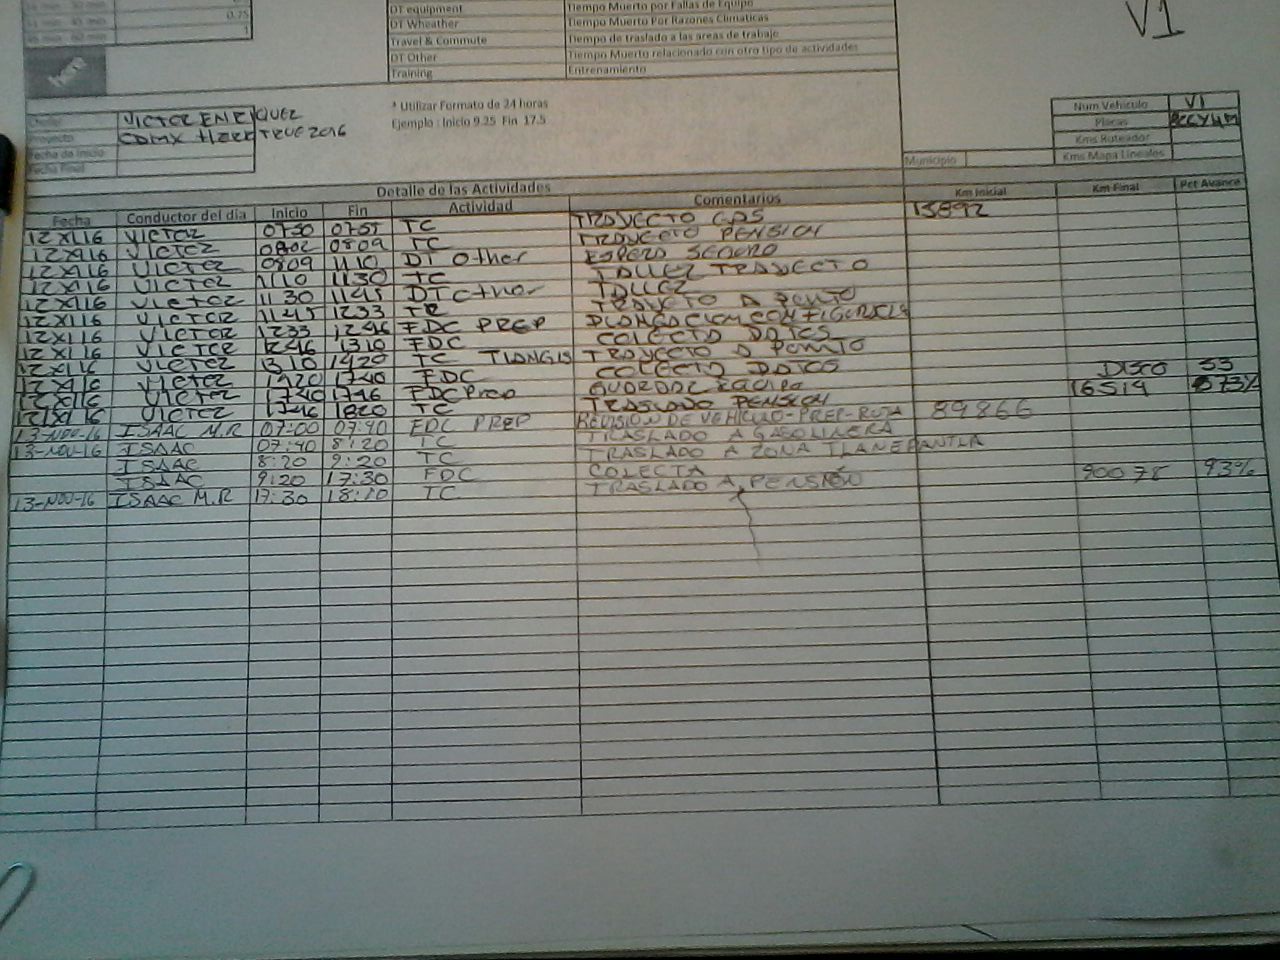 0.75
1
DT equipment Tiempo Muerto por Fallas de Equipo
DT Wheather Tiempo Muerto Por Razones Climaticas
Travel & Commute Tiempo de traslado a las areas de trabajo
DT Other Tiempo Muerto relacionado con otro tipo de actividades
Training Entrenamiento
V1
* Utilizar Formato de 24 horas
Ejemplo : Inicio 9.25 Fin 17.5
VICTOR ENRIQUEZ
Proyecto CDMX HERE TRUE 2016
Fecha de Inicio
Fecha Final
Num Vehiculo V1
Placas
Kms Ruteador
Kms Mapa Lineales
Municipio
Detalle de las Actividades
Fecha Conductor del dia Inicio Fin Actividad Comentarios Km Inicial Km Final Pct Avance
12 XI 16 VICTOR 0730 TC TRAYECTO GPS 15892
12 XI 16 VICTOR 0802 0809 TC TRAYECTO PENSION
12 XI 16 VICTOR 0809 1110 DT Other ESPERA SEGURO
12 XI 16 VICTOR 1110 1130 TC TALLER TRAYECTO
12 XI 16 VICTOR 1130 1145 DT other TALLER
12 XI 16 VICTOR 1145 1233 TRAYECTO A PUNTO
12 XI 16 VICTOR 1233 1246 FDC PREP
12 XI 16 VICTOR 1246 1310 FDC COLECTA DATOS
12 XI 16 VICTOR 1310 1420 TC TIANGIS TRAYECTO A PUNTO
12 XI 16 VICTOR 1420 1740 FDC COLECTA DATOS DISCO 53
12 XI 16 VICTOR 1740 1746 FDC Prep GUARDAR EQUIPO 16519
12 XI 16 VICTOR 1746 1820 TC TRASLADO PENSION
13-NOV-16 ISAAC M.R 07:00 07:40 FDC PREP REVISION DE VEHICULO-PREP-RUTA 89866
13-NOV-16 ISAAC 07:40 8:20 TC TRASLADO A GASOLINERA
ISAAC 8:20 9:20 TC TRASLADO A ZONA TLANEPANTLA
ISAAC 9:20 17:30 FDC COLECTA 90078 93%
13-NOV-16 ISAAC M.R 17:30 18:10 TC TRASLADO A PENSIÓN